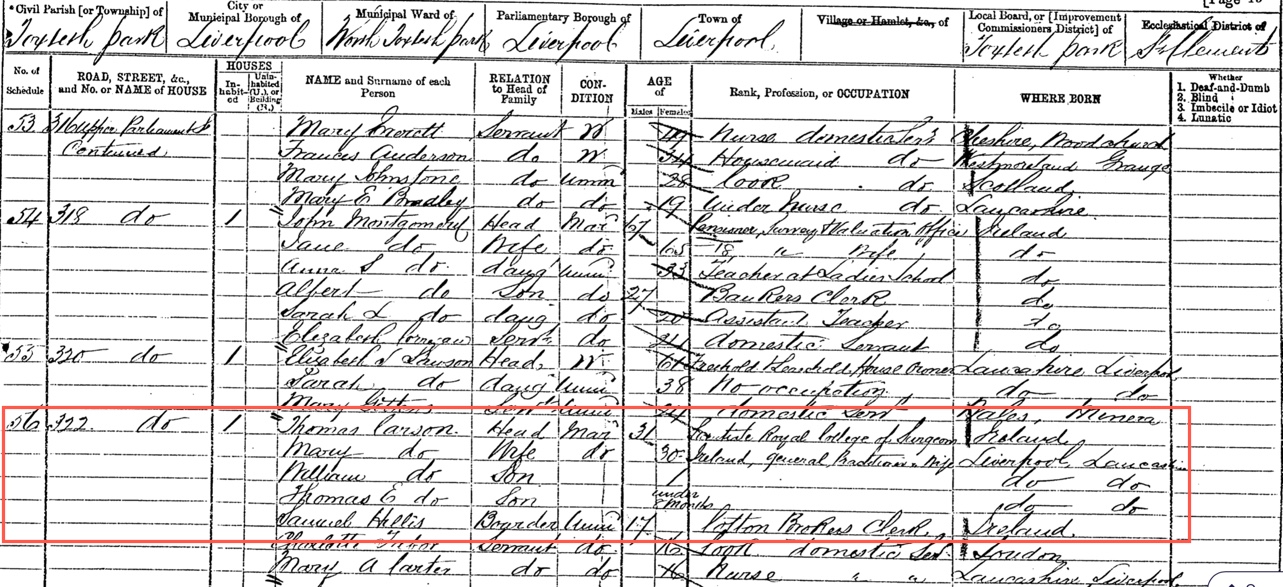 [Page 49
*Civil Parish [or Township] of City or Municipal Borough of Municipal Ward of Parliamentary Borough of Town of Village or Hamlet, &c., of Local Board, or [Improvement Commissioners District] of Ecclesiastical District of
Toxteth Park Liverpool North Toxteth Park Liverpool Liverpool Toxteth Park St Clements
No. of Schedule ROAD, STREET, &c., and No. or NAME of HOUSE HOUSES Inhabited Uninhabited (U.), or Building (B.) NAME and Surname of each Person RELATION to Head of Family CONDITION AGE of Males Females Rank, Profession, or OCCUPATION WHERE BORN Whether 1. Deaf-and-Dumb 2. Blind 3. Imbecile or Idiot 4. Lunatic
53 Upper Parliament St Mary Servant W Nurse domestic Cheshire, Woodchurch
Continued Frances Anderson do W 34 Housemaid do Westmoreland Grange
Mary Johnstone do Unm 28 Cook do Scotland
Mary E Bradley do do 19 Under Nurse do Lancashire
54 318 do 1 John Montgomery Head Mar 67 Pensioner, Survey & Valuation Office Ireland
Jane do Wife do 65 Wife do
Anna S do daug Unm 33 Teacher at Ladies School do
Albert do Son do 27 Bankers Clerk do
Sarah L do daug do 20 Assistant Teacher do
Elizabeth Serv do 21 domestic Servant do
55 320 do 1 Elizabeth S Lawson Head W 61 Freehold Leasehold House Owner Lancashire Liverpool
Sarah do daug Unm 38 No occupation do do
Mary Serv Unm 24 domestic Serv Wales, Minera
56 322 do 1 Thomas Carson Head Mar 31 Royal College of Surgeons Ireland
Mary do Wife do 30 Ireland, general Wife Liverpool, Lancashire
William do Son 1 do do
Thomas E do Son under months do do
Samuel Hillis Boarder Unm 17 Cotton Brokers Clerk Ireland
Charlotte Servant do 16 Cook domestic Serv London
Mary A Carter do do 16 Nurse " " Lancashire Liverpool